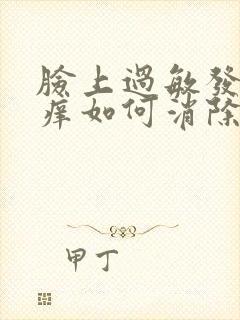 臉上過敏發
痒如何消除
甲丁